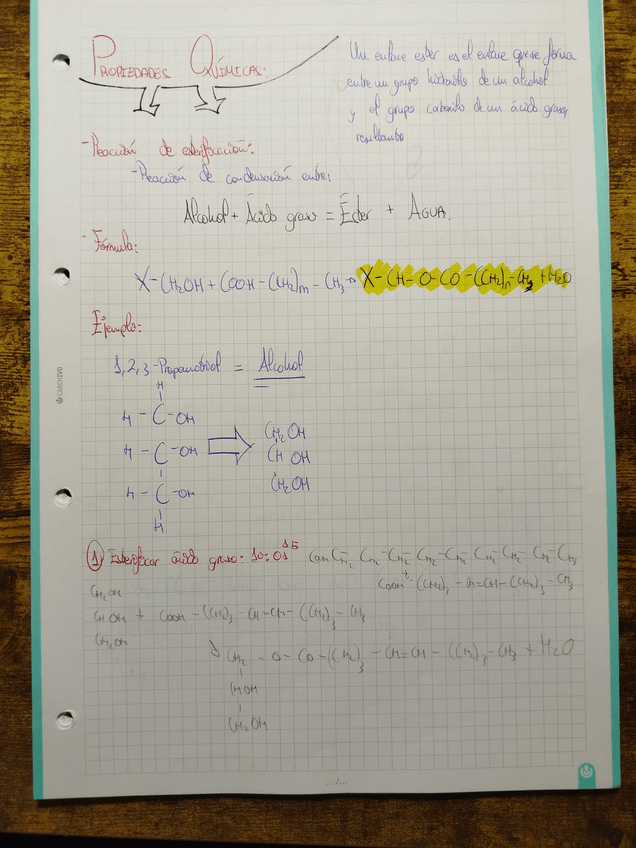 PROPIEDADES QUÍMICAS:
Un enlace ester es el enlace que se forma
entre un grupo hidroxilo de un alcohol
y el grupo carboxilo de un ácido graso,
resultando
- Reacción de esterificación:
- Reacción de condensación entre:
Alcohol + Ácido graso = Éster + AGUA.
- Fórmula:
X-CH2OH + COOH-(CH2)m-CH3 → X-CH-O-CO-(CH2)n-CH3 + H2O
Ejemplo:
1,2,3-Propanotriol = Alcohol
H
H-C-OH
H-C-OH
H-C-OH
H
CH2OH
CHOH
CH2OH
① Esterificar ácido graso: 10:
CH2 CH2 CH2 CH2 CH2 CH2 CH2 CH3
COOH-(CH2)3-CH=CH-(CH2)3-CH3
CH2OH
CHOH + COOH-(CH2)3-CH=CH-(CH2)3-CH3
CH2OH
CH2-O-CO-(CH2)3-CH=CH-(CH2)3-CH3 + H2O
CHOH
CH2OH